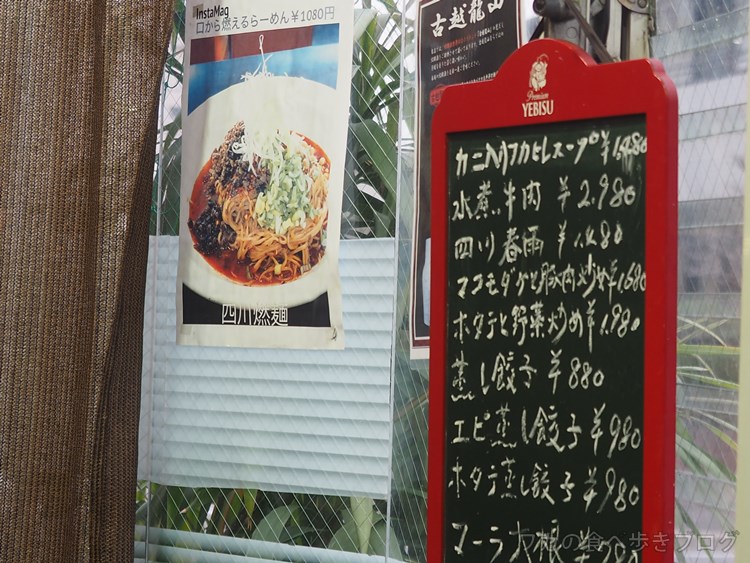 InstaMag
口から燃えるらーめん￥1080円
四川燃麺
古越龍山
Premium
YEBISU
カニ入りフカヒレスープ￥1,480
水煮牛肉 ￥2,980
四川春雨 ￥1,480
マコモダケと豚肉炒め￥1,680
ホタテと野菜炒め￥1,980
蒸し餃子 ￥880
エビ蒸し餃子￥980
ホタテ蒸し餃子￥980
マーラ大根
の食べ歩きブログ